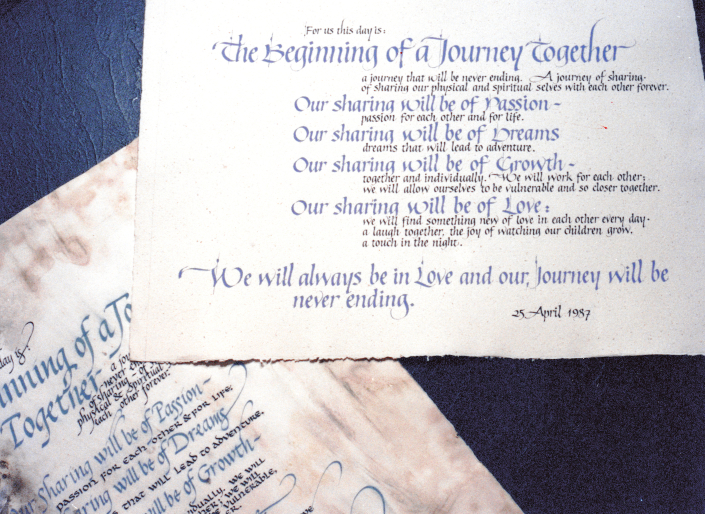 For us this day is:
The Beginning of a Journey Together
a journey that will be never ending. A journey of sharing-
of sharing our physical and spiritual selves with each other forever.
Our sharing will be of Passion -
passion for each other and for life.
Our sharing will be of Dreams
dreams that will lead to adventure.
Our sharing will be of Growth -
together and individually. We will work for each other;
we will allow ourselves to be vulnerable and so closer together.
Our sharing will be of Love:
we will find something new of love in each other every day-
a laugh together, the joy of watching our children grow,
a touch in the night.
We will always be in Love and our Journey will be
never ending.
25 April 1987
day is:
inning of a Jo
Together
a jou
never en
of sharing - of
physical & spiritual
each other forever.
our sharing will be of Passion -
passion for each other & for life;
ring will be of Dreams
that will lead to adventure.
ill be of Growth -
vidually, we will
her; we will
vulnerable,